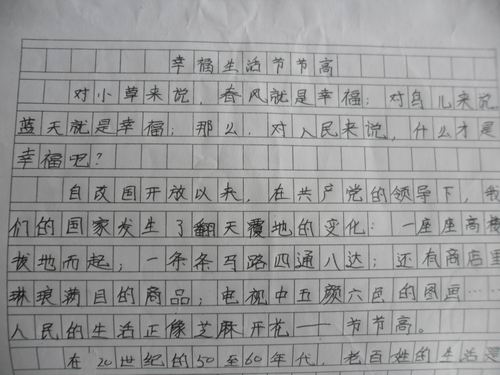 幸福生活节节高
对小草来说，春风就是幸福；对鸟儿来说
蓝天就是幸福；那么，对人民来说，什么才是
幸福呢？
自改国开放以来，在共产党的领导下，我
们的国家发生了翻天覆地的变化：一座座高楼
拔地而起；一条条马路四通八达；还有商店里
琳琅满目的商品；电视中五颜六色的图画……
人民的生活正像芝麻开花——节节高。
在20世纪的50至60年代，老百姓的生活是